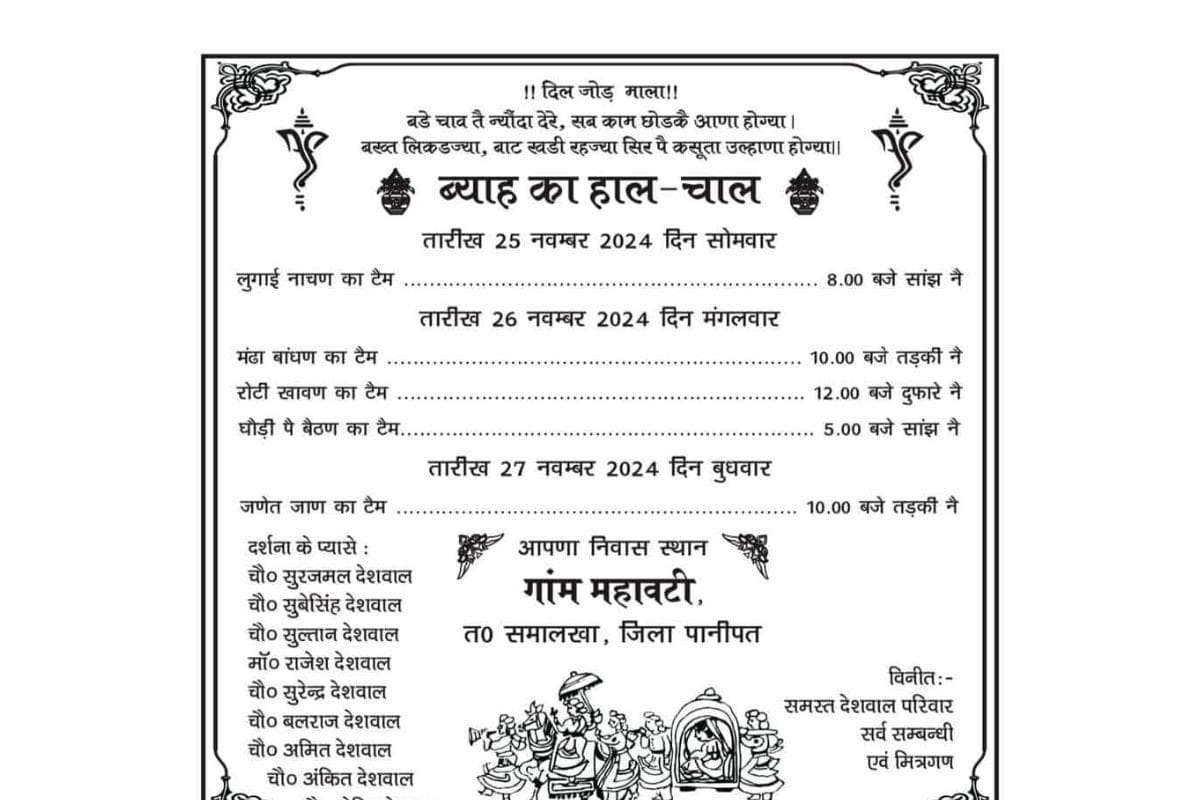 !! दिल जोड़ माला!!
बडे चाव तै न्यौंदा देरे, सब काम छोडकै आणा होग्या।
बख्त लिकडज्या, बाट खडी रहज्या सिर पै कसूता उल्हाणा होग्या॥
ब्याह का हाल-चाल
तारीख 25 नवम्बर 2024 दिन सोमवार
लुगाई नाचण का टैम ........................................................ 8.00 बजे सांझ नै
तारीख 26 नवम्बर 2024 दिन मंगलवार
मंढा बांघण का टैम ........................................................ 10.00 बजे तड़की नै
रोटी खावण का टैम ........................................................ 12.00 बजे दुफारे नै
घौड़ी पै बैठण का टैम........................................................ 5.00 बजे सांझ नै
तारीख 27 नवम्बर 2024 दिन बुधवार
जणेत जाण का टैम ........................................................ 10.00 बजे तड़की नै
दर्शना के प्यासे :
चौ० सुरजमल देशवाल
चौ० सुबेसिंह देशवाल
चौ० सुल्तान देशवाल
मॉ० राजेश देशवाल
चौ० सुरेन्द्र देशवाल
चौ० बलराज देशवाल
चौ० अमित देशवाल
चौ० अंकित देशवाल
आपणा निवास स्थान
गांम महावटी,
त0 समालखा, जिला पानीपत
विनीत:-
समस्त देशवाल परिवार
सर्व सम्बन्धी
एवं मित्रगण